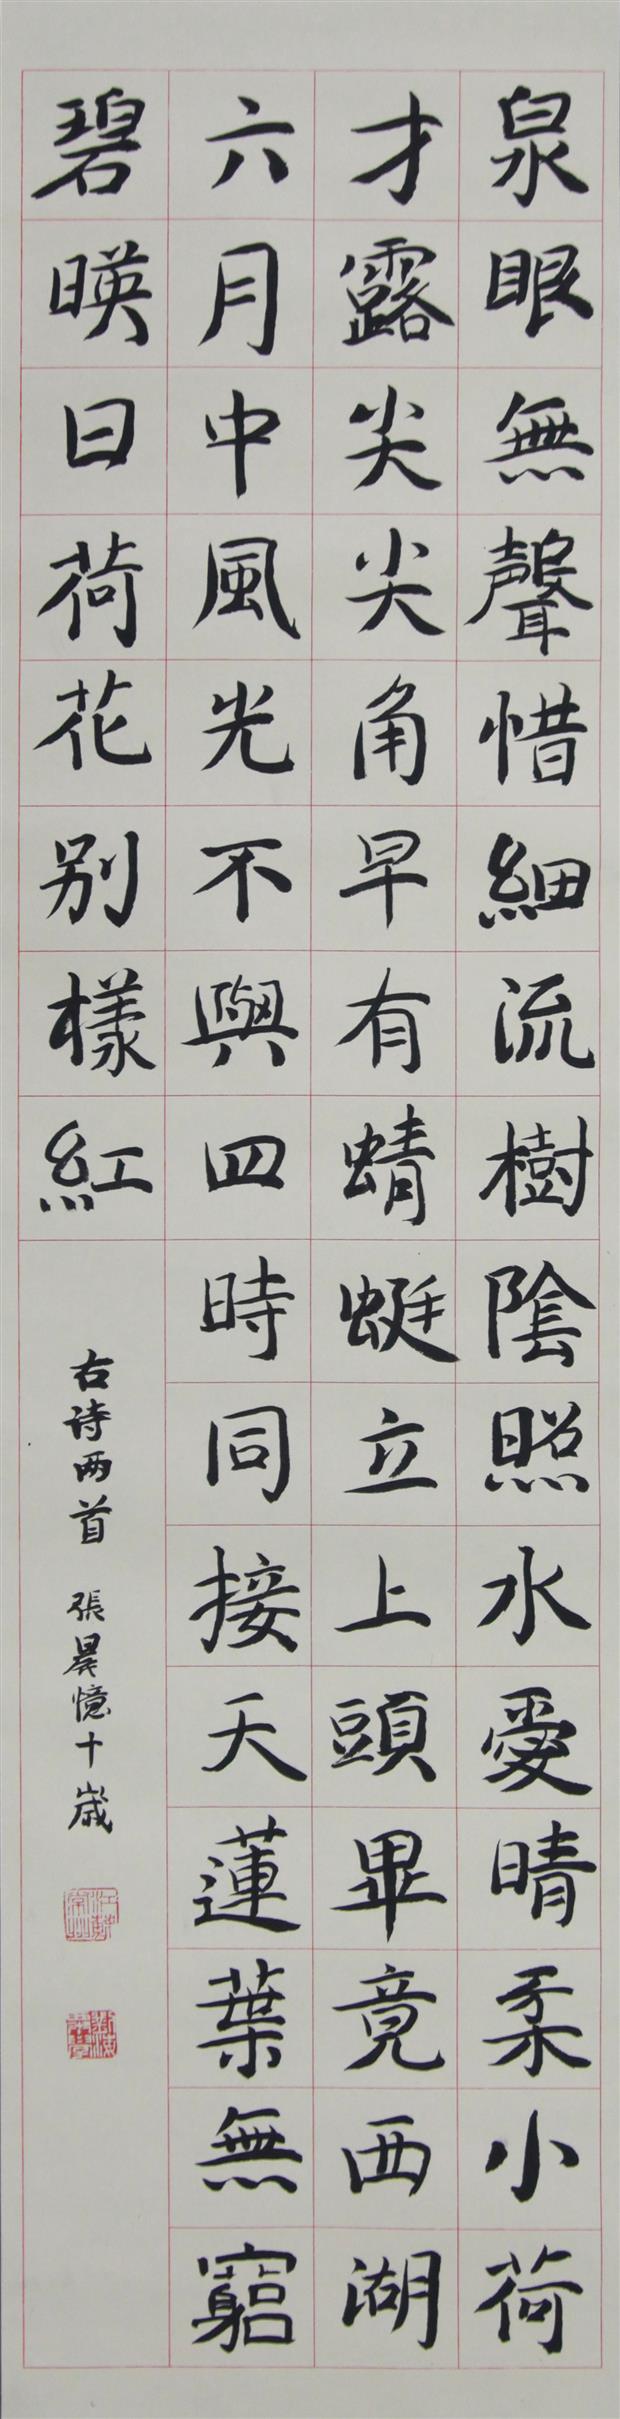 泉眼無聲惜細流樹陰照水愛晴柔小荷
才露尖尖角早有蜻蜓立上頭畢竟西湖
六月中風光不與四時同接天蓮葉無窮
碧暎日荷花别樣紅
右诗两首 張晨憶十歲